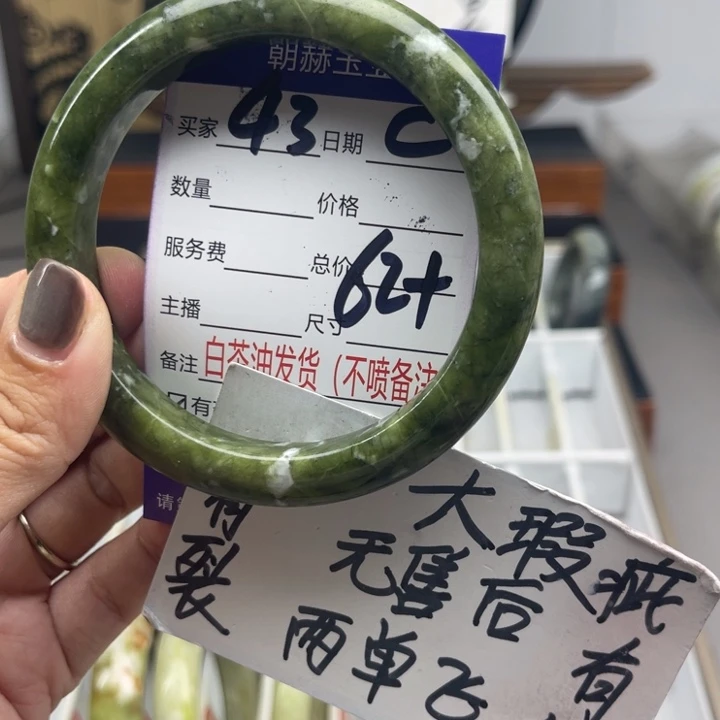 朝赫玉
买家 43 日期
数量 价格
服务费 总价
62+
主播 尺寸
备注 白茶油发货（不喷备注
有
请
有裂
大瑕疵
无售后
有
两单飞